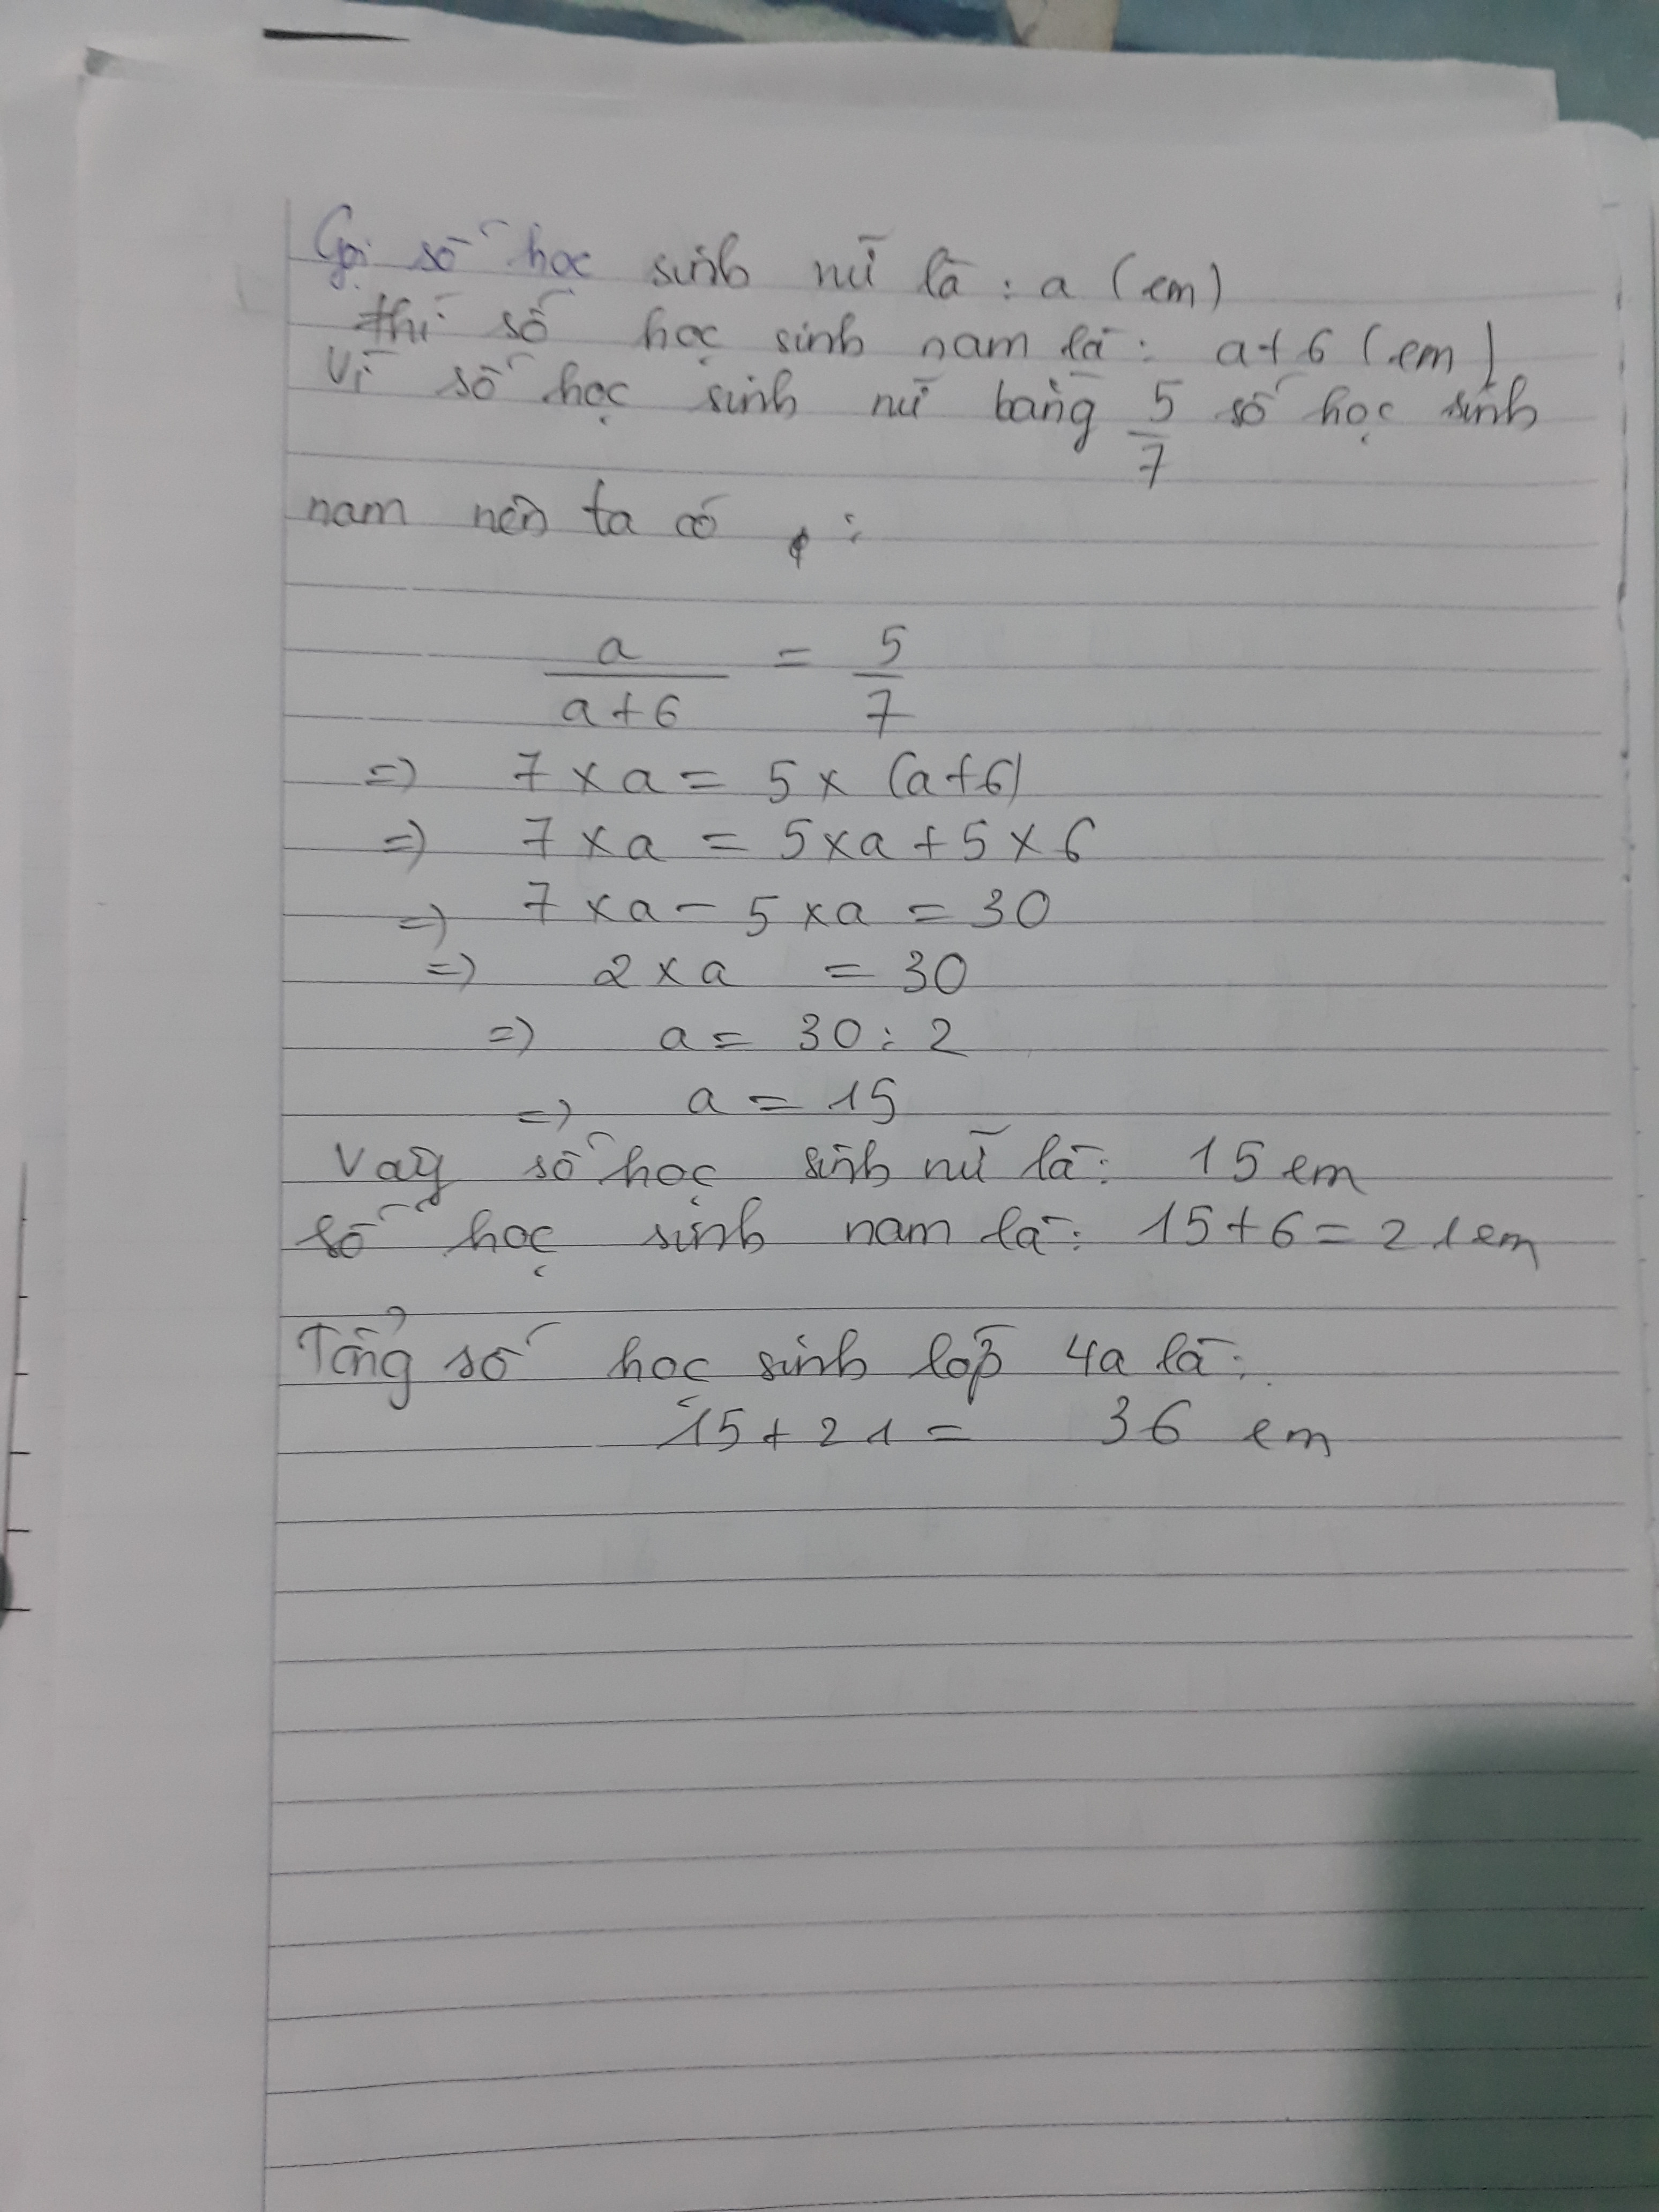 Gọi số học sinh nữ là : a (em)
thì số học sinh nam là : a+6 (em)
Vì số học sinh nữ bằng 5/7 số học sinh
nam nên ta có :
a/(a+6) = 5/7
=> 7 x a = 5 x (a+6)
=> 7 x a = 5 x a + 5 x 6
=> 7 x a - 5 x a = 30
=> 2 x a = 30
=> a = 30 : 2
=> a = 15
Vậy số học sinh nữ là : 15 em
số học sinh nam là : 15 + 6 = 21 em
Tổng số học sinh lớp 4a là :
15 + 21 = 36 em